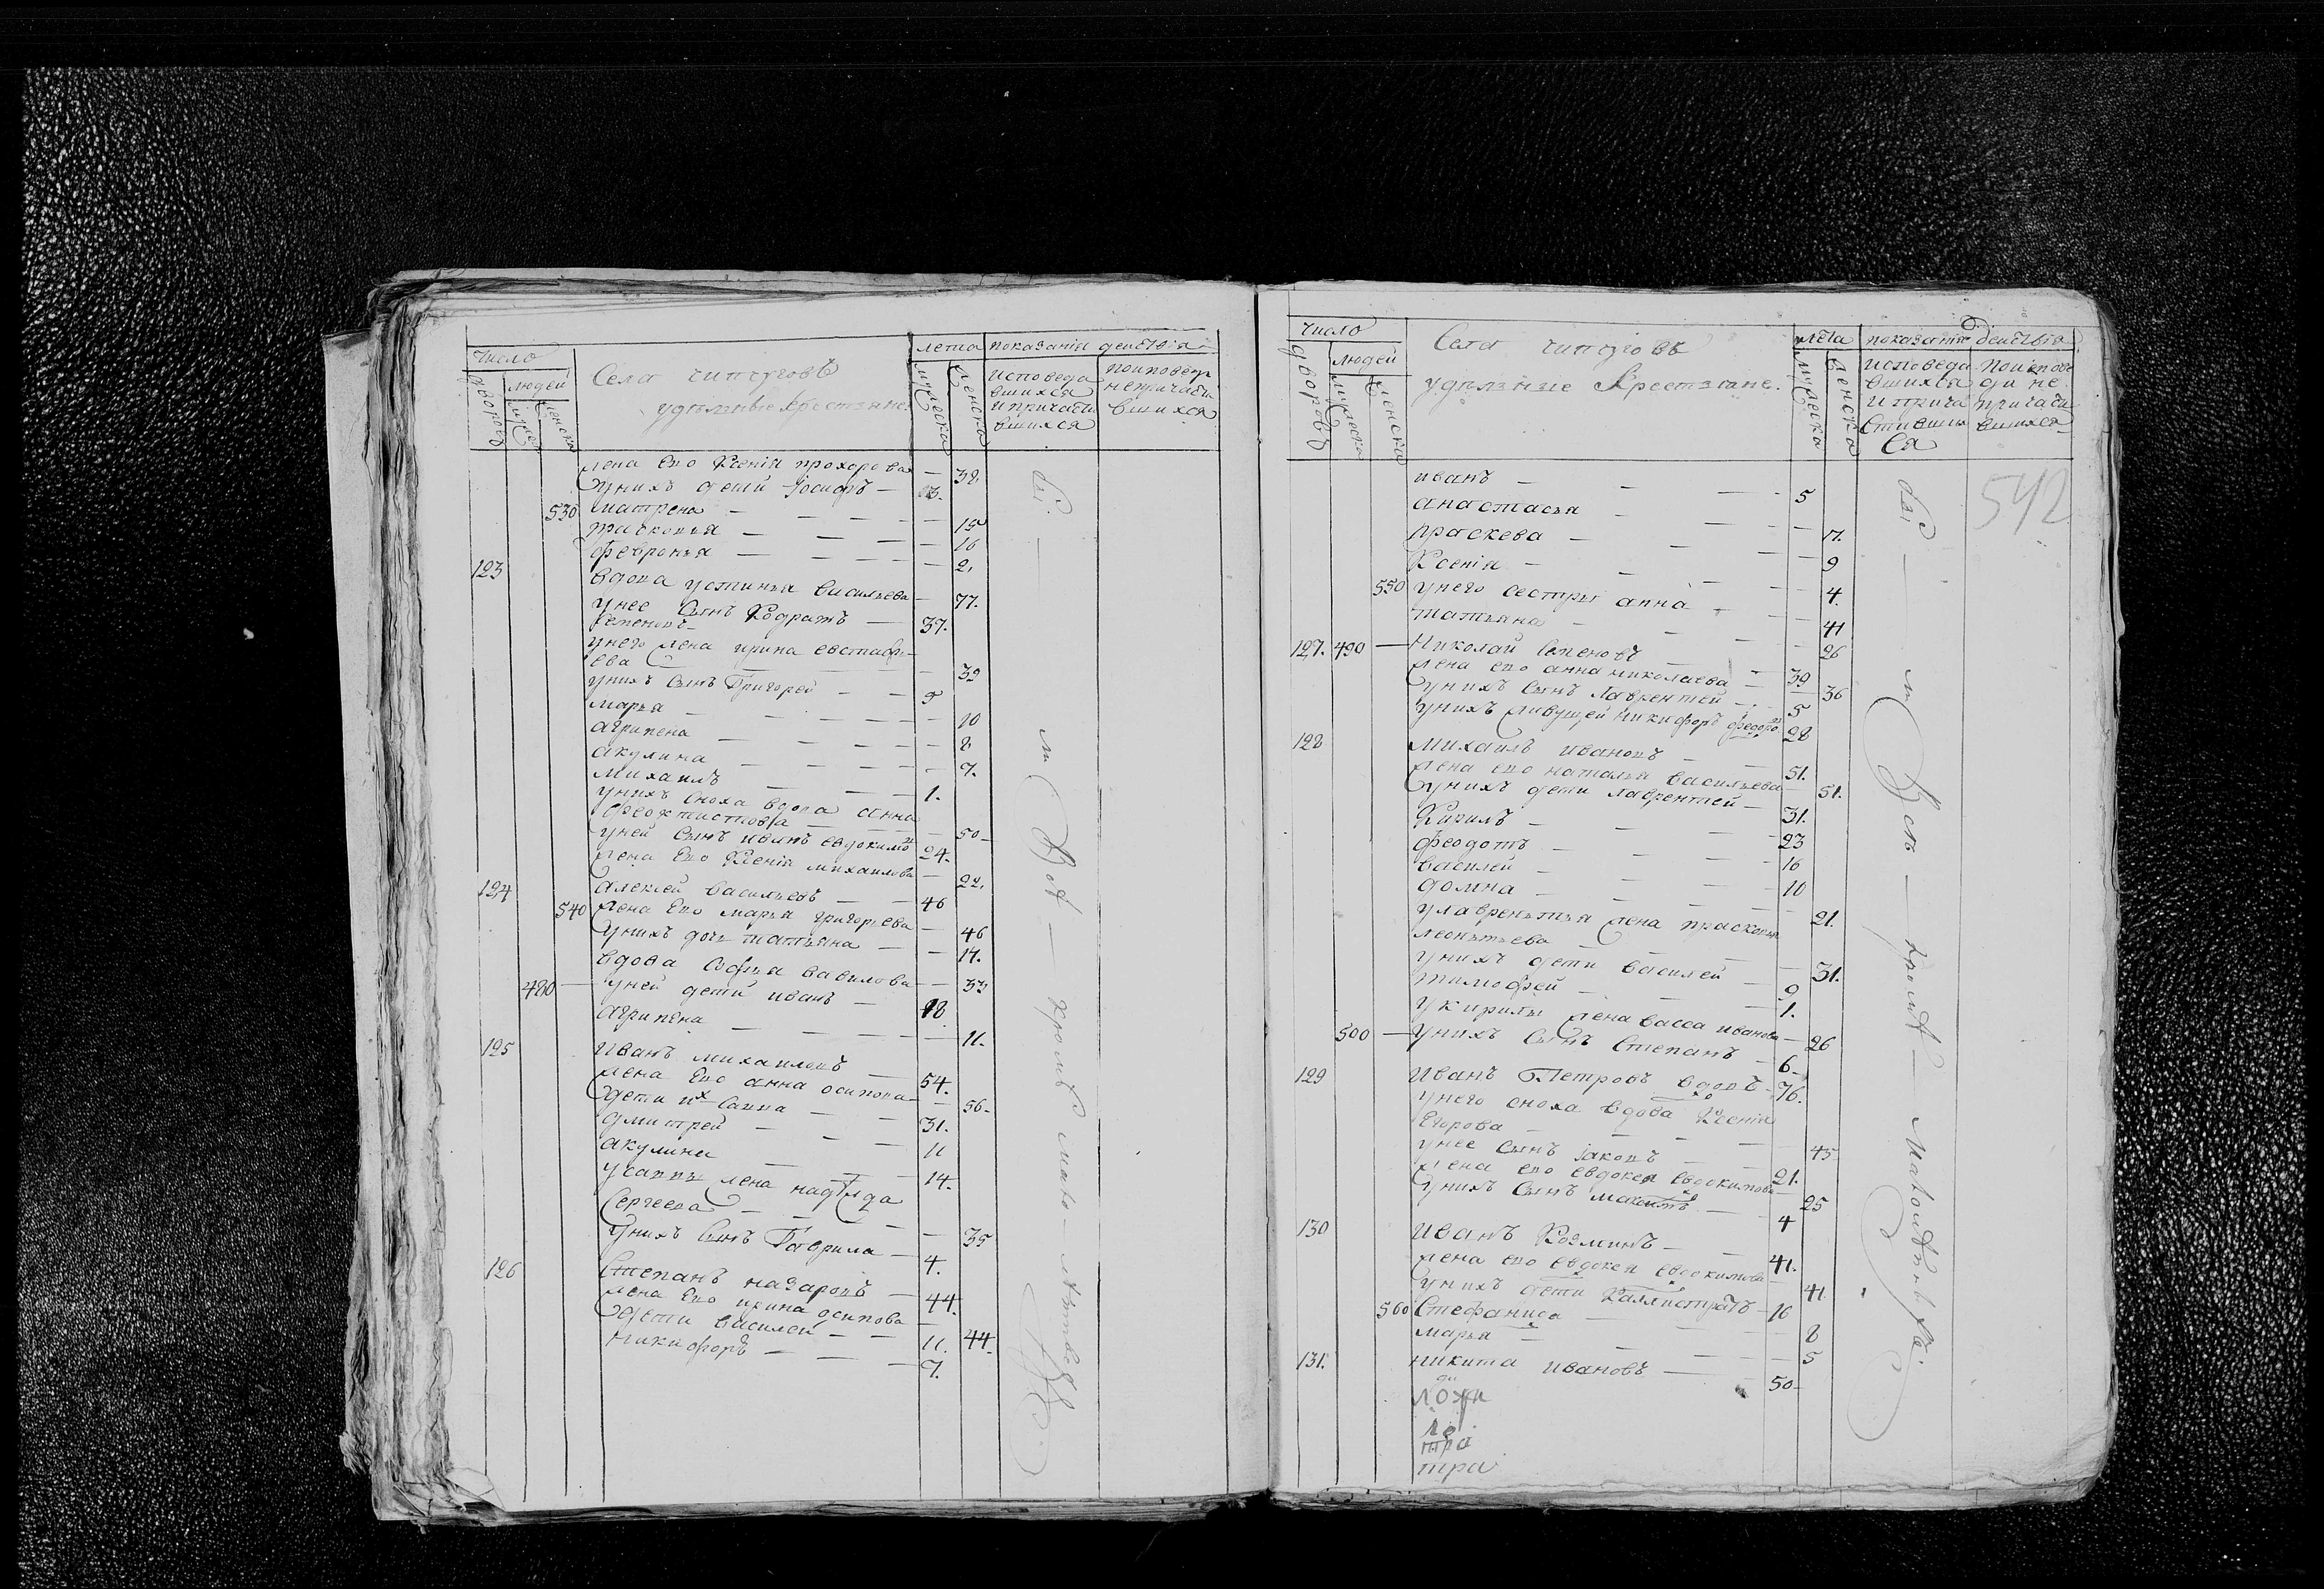 число
летиа показанія действія
дворовъ
людей
мужес
женска
Села чипчуговъ
удѣльные крестьяне
мужеска
женска
исповеда
вшихся
и причасти
вшихся
поисповеди
непричасти
вшихся
жена Ево Ксенія прохорова — 38
унихъ дети Іосифъ — 13.
530 матрена — 19
Прасковья — 16
февронья — 2.
123 вдова устинья васильева — 77.
унее сынъ Кодратъ
Семеновъ — 37.
унего жена ирина евстафи
ева — 39
унихъ сынъ Григорей — 9
марья — 10
агрипена — 8
акулина — 7.
михаилъ — 1.
унихъ сноха вдова анна
феохтистова — 50
уней сынъ иванъ евдокимо — 24.
жена Ево Ксенія михаилова — 22.
124 алексей васильевъ — 46
540 жена Ево марья григорьева — 46
унихъ дочь татьяна — 14.
вдова софья вавилова — 33
480 — уней дети иванъ — 18
агрипена — 11.
125 иванъ михаиловъ — 54.
жена Ево анна осипова — 56.
дети их Савва — 31.
дмитрей — 11
акулина — 14.
усаввы жена надѣжда
Сергеева — 35
унихъ сынъ Гаврила — 4.
126 Степанъ назаровъ — 44.
жена Ево ирина осипова — 44.
дети василей — 11.
никифоръ — 7.
вси — кромѣ мало — летнѣ
число
дворовъ
людей
мужеска
женска
Села чипчуговъ
удѣльные крестьяне.
лета показаніе действія
мужеска
женска
исповеда
вшихся
и прича
стивши
ся
поиспове
ди не
причасти
вшихся
542
иванъ — 5
анастасья — 17.
праскева — 9
Ксенія — 4.
550 унего сестры анна — 41
татьяна — 26
127. 490 — Николай Семеновъ — 39
жена ево анна николаева — 36
унихъ сынъ лаврентей — 5
унихъ живущей никифоръ федоро — 28
128 михаилъ ивановъ — 51.
жена ево наталья васильева — 51.
унихъ дети лаврентей — 31.
Кирилъ — 23
феодотъ — 16
василей — 10
домна — 21.
улаврентья жена прасковья
леонтьева — 31.
унихъ дети василей — 9
тимофей — 1.
укирилы жена васса иванова — 26
500 — унихъ сынъ Степанъ — 6.
129 иванъ Петровъ вдовъ — 76.
унего сноха вдова Ксенія
Егорова — 45
унее сынъ Іаковъ — 21.
жена ево евдокея евдокимова — 25
унихъ сынъ максимъ — 4
130 иванъ Козминъ — 41.
жена ево евдокея евдокимова — 41.
унихъ дети Каллистратъ — 16
560 Стефанида — 8
марья — 5
131. никита ивановъ — 50
тра
тра
вси — кромѣ — малолѣтнихъ